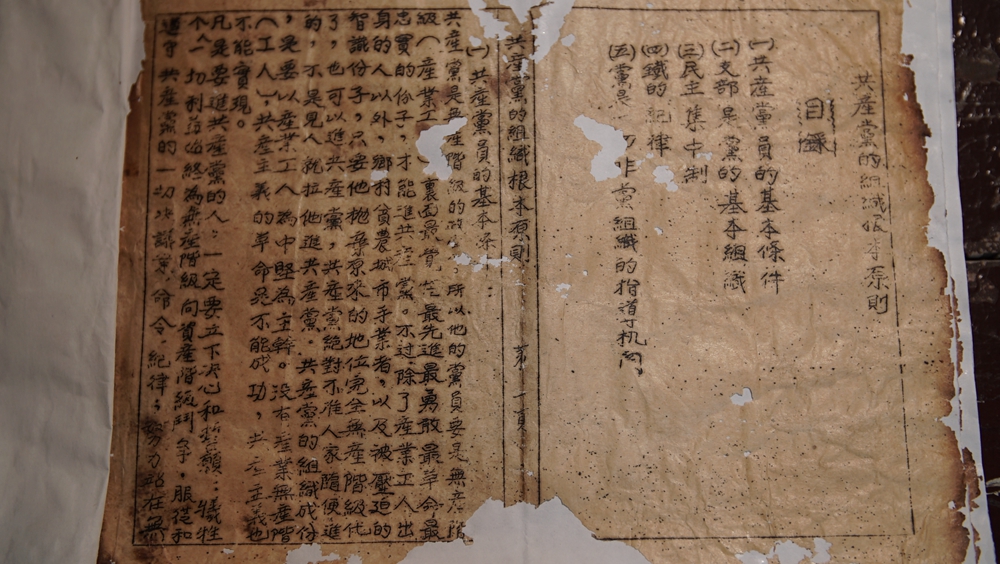 共產黨的組織根本原則
目錄
(一)共產黨員的基本條件
(二)支部是黨的基本組織
(三)民主集中制
(四)鐵的紀律
(五)黨是 切非黨組織的指導机関
共產黨的組織根本原則 第一頁
(一)共產黨員的基本条 :
共產黨是無產階級的政 ,所以他的黨員要是無產階
級(產業工 )裏面最覺 最先進最勇敢最革命最
忠實的份子,才能進共產黨。不过除了產業工人出
身的人以外,鄉村貧農城市手業者,以及被壓迫的
智識份子,只要他拋棄原來的地位完全無產階級化
了,也可以進共產黨,共產黨絕對不准人家隨便進
的,不是見人就拉他進共產黨。共產黨的組織成份
,是要以產業工人為中堅為主幹。沒有產業無產階
(工人),共產主義的革命是不能成功,共產主義也
不能實現。
凡是要進共產黨的人:一定要立下决心和 願:犧牲
个人一切利益始終為無產階級向資產階級鬥争,服從和
遵守共產黨的一切决議案,命令,紀律; 力站在無